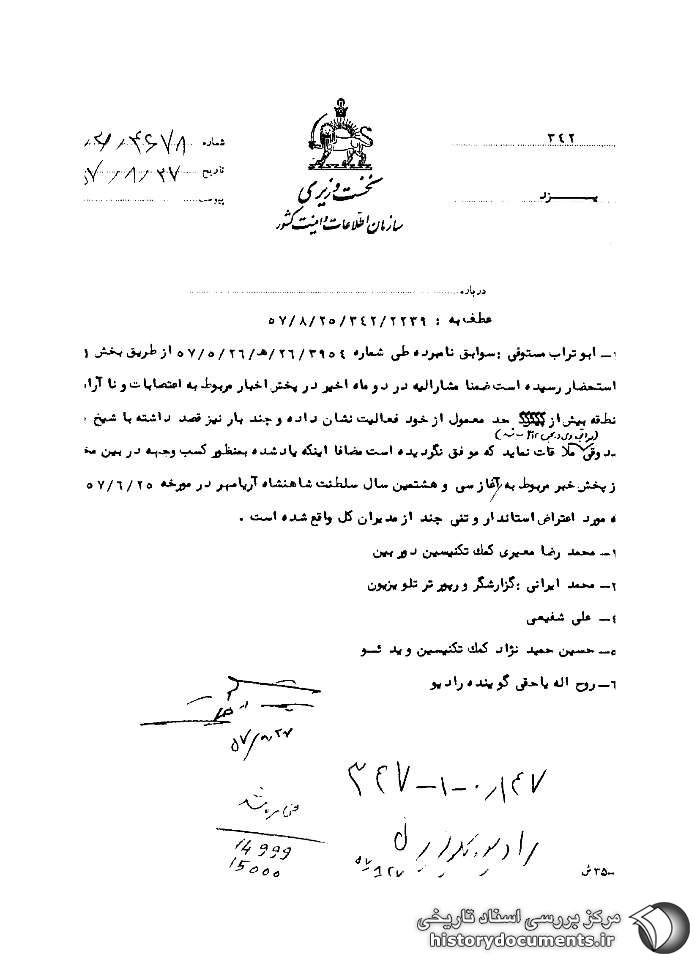 ۳٤۲
شماره
تاریخ ۵۷/۸/۲۷
پیوست
یـــزد
نخست وزیری
سازمان اطلاعات و امنیت کشور
درباره
عطف به : ۵۷/۸/۲۵/۳٤۲/۲۲۳۹
۱ـ ابو تراب مستوفی : سوابق نامبرده طی شماره ۳۹۵٤/۲٦/هـ/۵۷/۵/۲٦ از طریق بخش
استحضار رسیده است ضمنا مشارالیه در دو ماه اخیر در پخش اخبار مربوط به اعتصابات و نا آرا
نطقه بیش از حد معمول از خود فعالیت نشان داده و چند بار نیز قصد داشته با شیخ
دوقی ملاقات نماید که موفق نگردیده است مضافا اینکه یادشده بمنظور کسب وجهه در بین مخ
ز پخش خبر مربوط به آغاز سی و هشتمین سال سلطنت شاهنشاه آریامهر در مورخه ۵۷/٦/۲۵
ه مورد اعتراض استاندار و تنی چند از مدیران کل واقع شده است .
۱ـ محمد رضا معیری کمك تکنیسین دوربین
۲ـ محمد ایرانی : گزارشگر و رپورتر تلویزیون
٤ـ علی شفیعی
۵ـ حسین حمید نژاد کمك تکنیسین ویدئو
٦ـ روح اله یاحقی گوینده رادیو
۵۷/۸/۲۷
۳۴۷-۱-۰/۱۴۷
14999
15000
۳۵۰ ش
مرکز بررسی اسناد تاریخی
historydocuments.ir